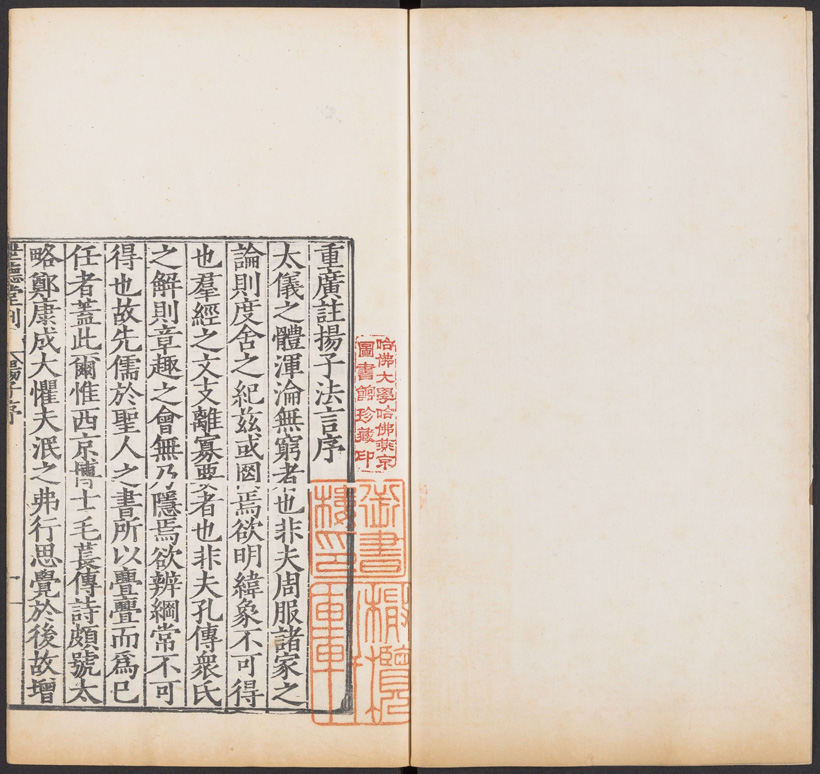 重廣註揚子法言序
太儀之體渾淪無窮者也非夫周服諸家之
論則度舍之紀茲或罔焉欲明緯象不可得
也羣經之文支離寡要者也非夫孔傳衆氏
之解則章趣之會無乃隱焉欲辨綱常不可
得也故先儒於聖人之書所以亹亹而爲已
任者蓋此爾惟西京博士毛萇傳詩頗號太
略鄭康成大懼夫泯之弗行思覺於後故增
世德堂刊 揚子序 一
哈佛大學哈佛燕京
圖書館珍藏印
御書